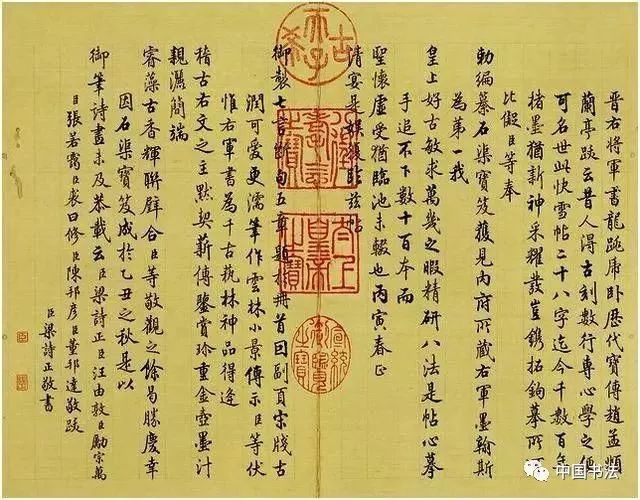 晉右將軍書龍跳虎卧歷代寶傳趙孟頫
蘭亭跋云昔人得古刻數行專心學之便
可名世此快雪帖二十八字迄今千數百年
楮墨猶新神采耀發豈鐫拓鉤摹所可
比儗臣等奉
勅編纂石渠寶笈獲見內府所藏右軍墨翰斯
為第一我
皇上好古敏求萬幾之暇精研八法是帖心摹
手追不下數十百本而
聖懷虛受猶臨池未輟也丙寅春正
清宴是娛復臨茲帖
御製七言斷句五章題於冊首因副頁宋牋古
潤可愛更濡筆作雲林小景傳示臣等伏
惟右軍書為千古藝林神品得逢
稽古右文之主默契薪傳鑒賞珍重金壺墨汁
親灑簡端
睿藻古香輝聯璧合臣等敬觀之餘曷勝慶幸
因石渠寶笈成於乙丑之秋是以
御筆詩畫未及恭載云臣梁詩正臣汪由敦臣勵宗萬
臣張若靄臣裘曰修臣陳邦彥臣董邦達敬跋
臣梁詩正敬書
古希天子
八徵耄念之寶
太上皇帝之寶
宣統御覽之寶
中国书法